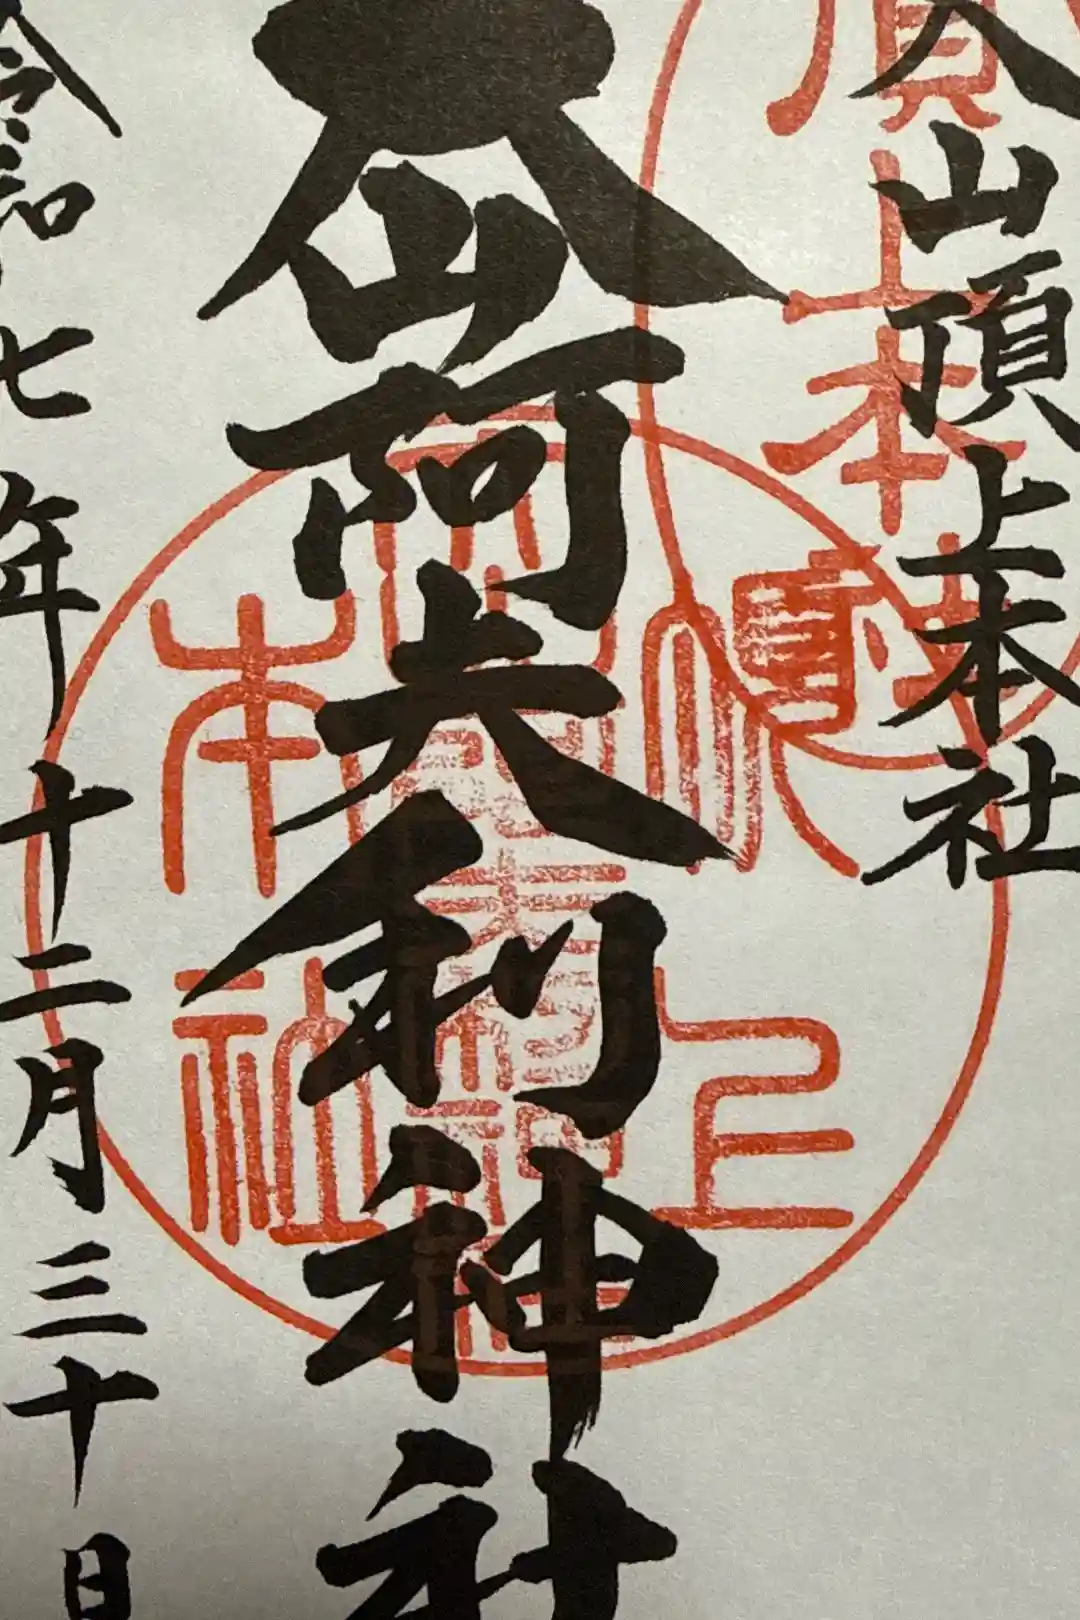 大山頂上本社
大山阿夫利神社
令和七年十二月三十日
頂上本社
頂上
本社